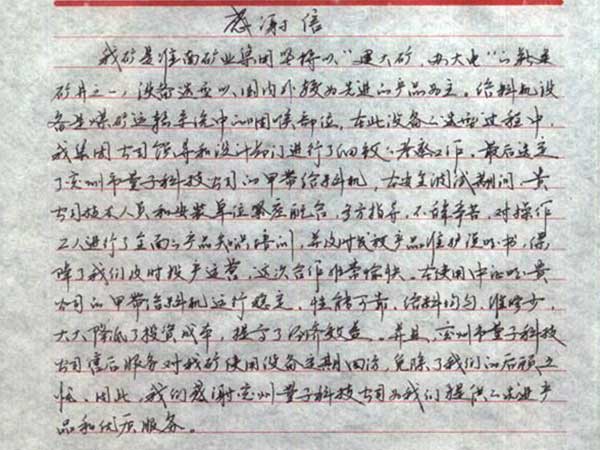 感谢信
我矿是淮南矿业集团坚持以“建大矿，办大电”的新建
矿井之一，设备选型以国内外较为先进的产品为主。给料机设
备是煤矿运输系统中的咽喉部位，在此设备的选型过程中，
我集团公司领导和设计部门进行了细致的考察工作。最后选定
了兖州市量子科技公司的甲带给料机，在安装调试期间，贵
公司技术人员和安装单位紧密配合，多方指导，不辞辛苦，对操作
工人进行了全面的产品知识培训，并及时发放产品维护说明书，保
障了我们及时投产运营，这次合作非常愉快。在使用中证明贵
公司的甲带给料机运行稳定，性能可靠，给料均匀，维修少，
大大降低了投资成本，提高了经济效益。并且，兖州市量子科技
公司售后服务对我矿使用设备定期回访，免除了我们的后顾之
忧。因此，我们感谢兖州量子科技公司为我们提供的先进产
品和优质服务。